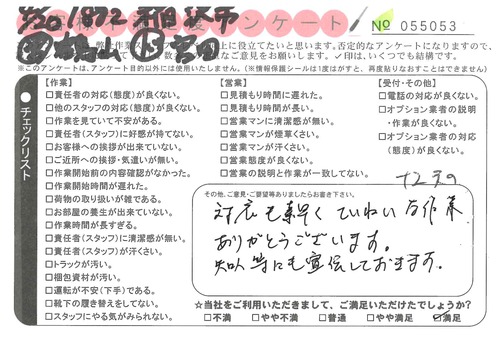 4/20 1872 稲沢市
お客様 応援 アンケート № 055053
※このアンケートは、アンケート目的以外には使用いたしません。(※情報保護シールは1度はがすと、再度貼りなおすことはできません)
チェックリスト
【作業】
□責任者の対応(態度)が良くない。
□他のスタッフの対応(態度)が良くない。
□作業を見ていて不安がある。
□責任者(スタッフ)に好感が持てない。
□お客様への挨拶が出来ていない。
□ご近所への挨拶・気遣いが無い。
□作業開始前の内容確認がなかった。
□作業開始時間が遅れた。
□荷物の取り扱いが雑である。
□お部屋の養生が出来ていない。
□作業時間が長すぎる。
□責任者(スタッフ)に清潔感が無い。
□責任者(スタッフ)が汗くさい。
□トラックが汚い。
□梱包資材が汚い。
□運転が不安(下手)である。
□靴下の履き替えをしてない。
□スタッフにやる気がみられない。
【営業】
□見積もり時間に遅れた。
□見積もり時間が長い。
□営業マンに清潔感が無い。
□営業マンが煙草くさい。
□営業マンが汗くさい。
□営業の態度が良くない。
□営業の説明と作業が一致してない。
【受付・その他】
□電話の対応が良くない。
□オプション業者の説明
・作業が良くない。
□オプション業者の対応
(態度)が良くない。
その他、ご意見・ご要望等ありましたらお書き下さい。
対応も素早くていねいな作業
ありがとうございます。
知人等にも宣伝しておきます。
☆当社をご利用いただきまして、ご満足いただけたでしょうか?
□不満 □やや不満 □普通 □やや満足 ☑満足